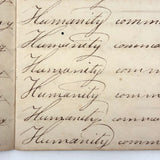 Humanity comm
Humanity comma
Humanity comm
Humanity comm
Humanity comma
Humanity comma